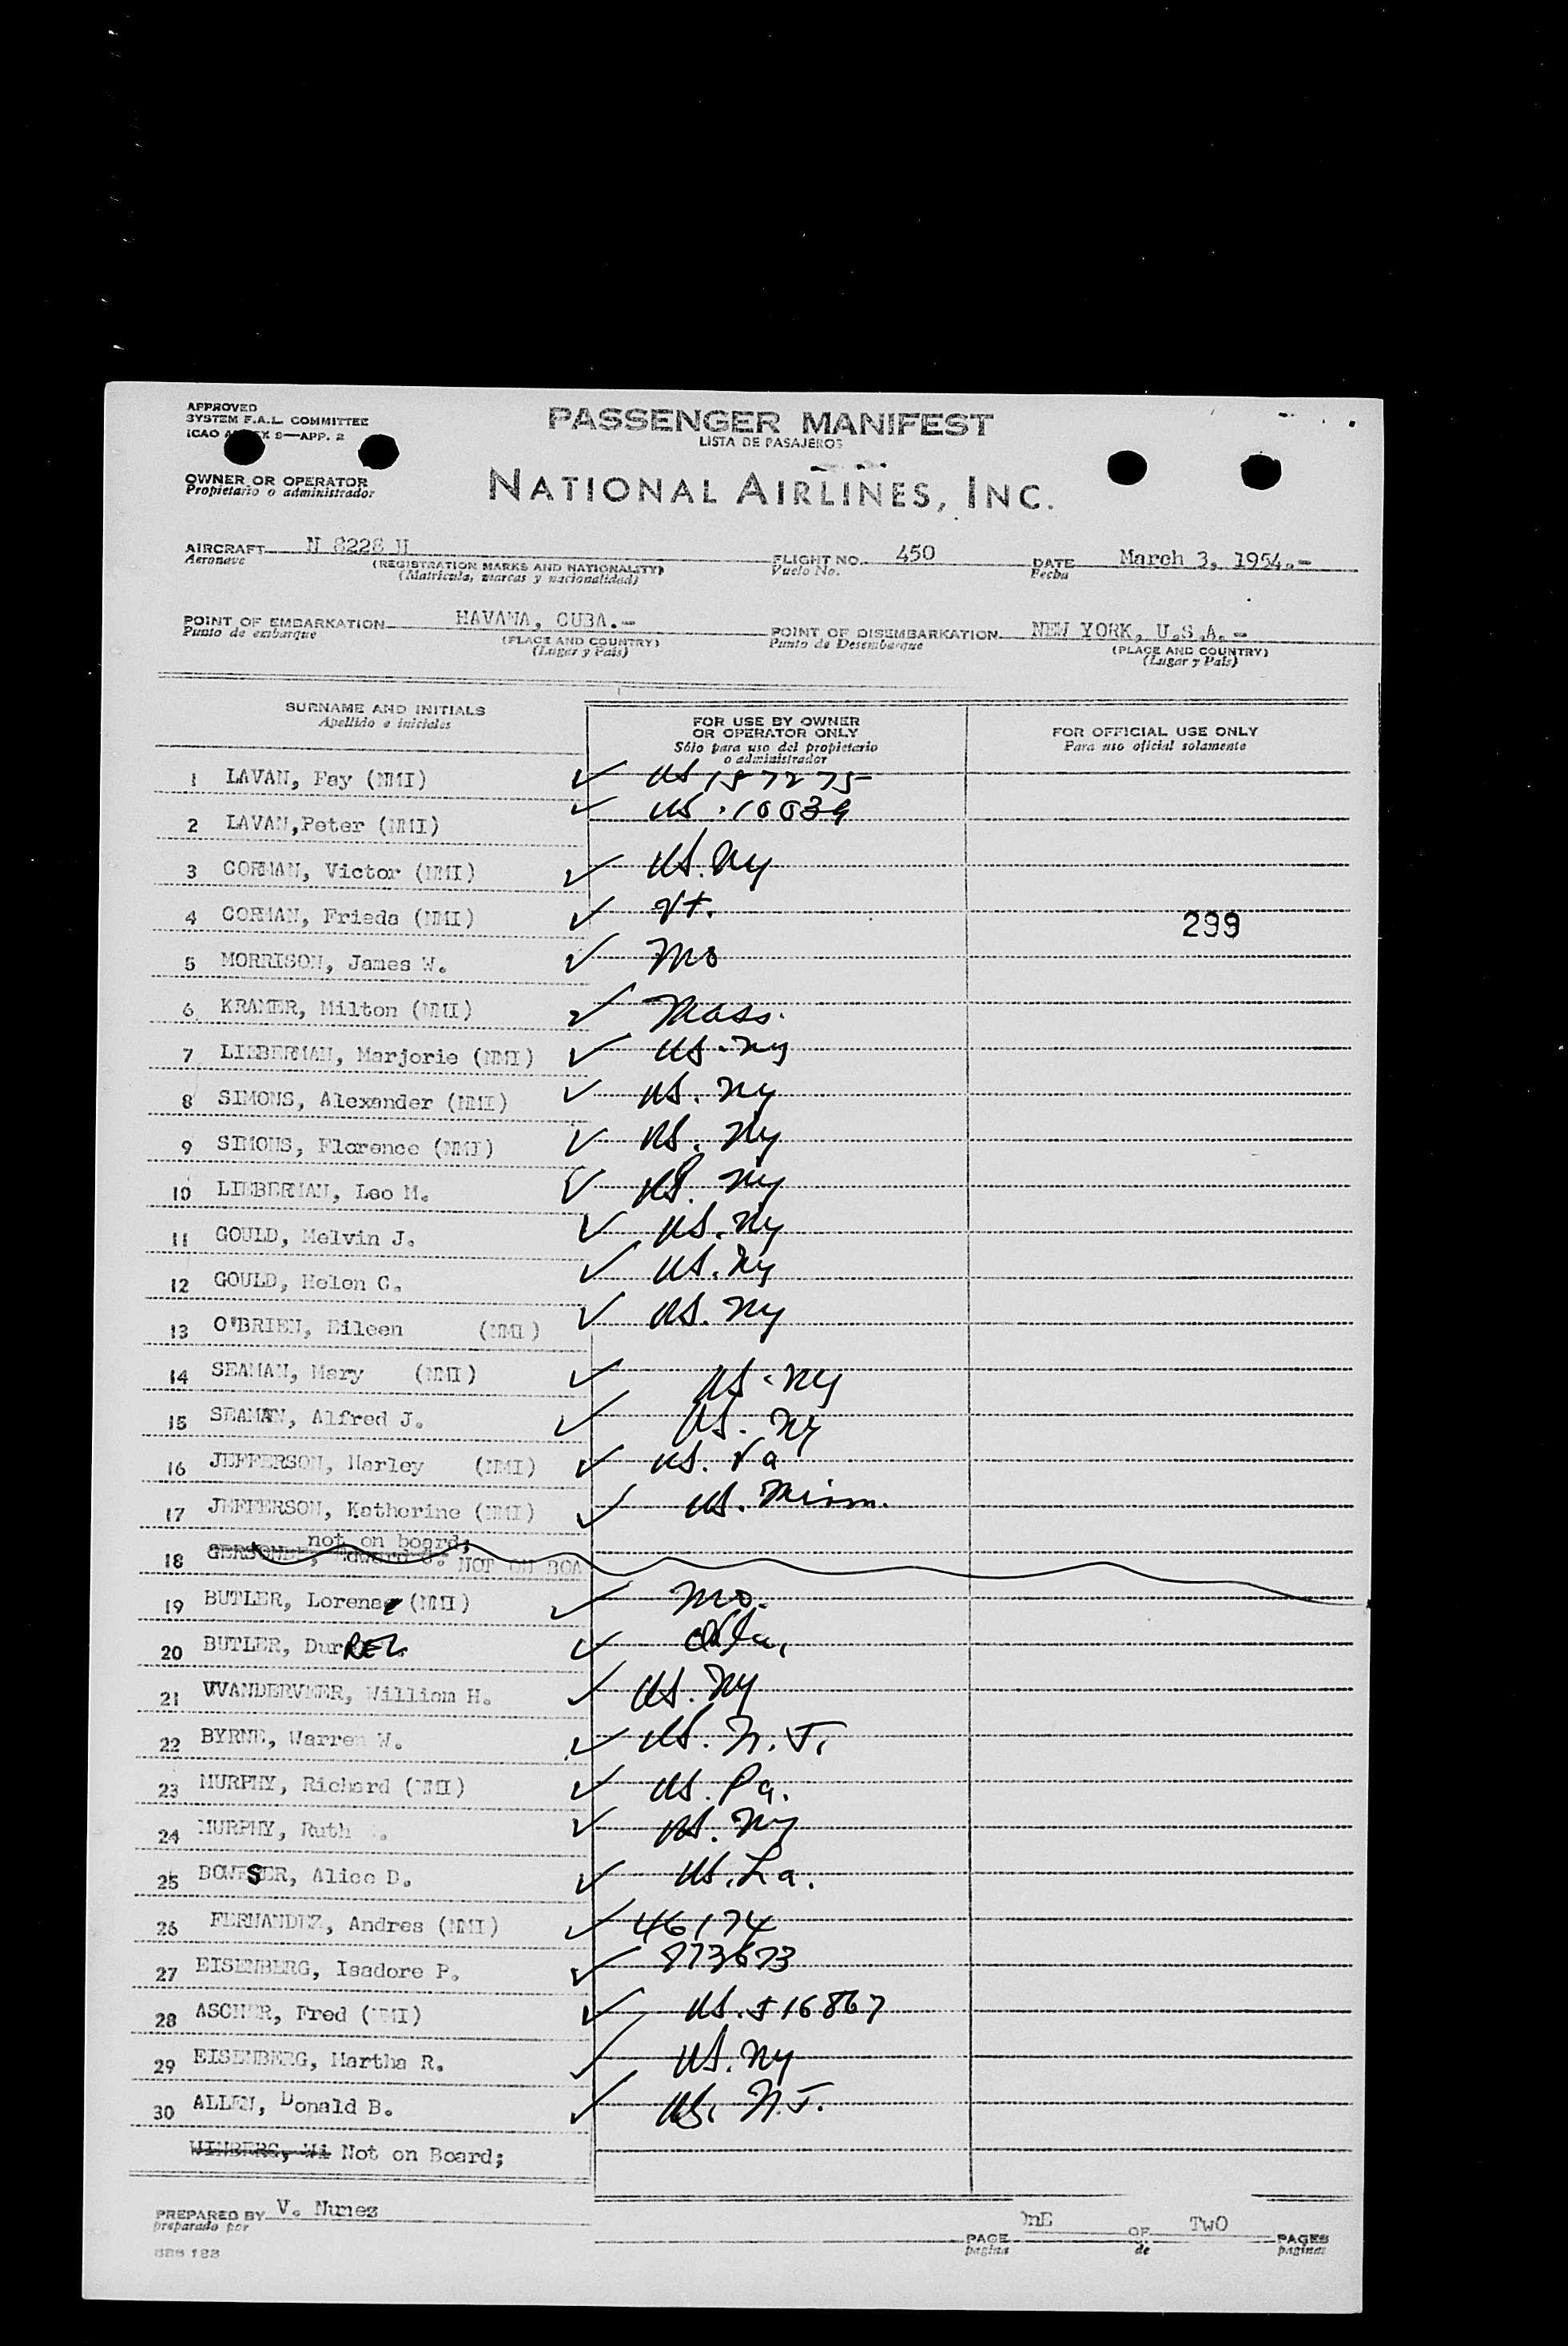 APPROVED
SYSTEM F.A.L. COMMITTEE
ICAO 9—APP. 2
PASSENGER MANIFEST
LISTA DE PASAJEROS
OWNER OR OPERATOR
Propietario o administrador
NATIONAL AIRLINES, INC.
AIRCRAFT N 8228 H FLIGHT NO. 450 DATE March 3, 1954.-
Aeronave (REGISTRATION MARKS AND NATIONALITY) Vuelo No. Fecha
(Matricula, marcas y nacionalidad)
POINT OF EMBARKATION HAVANA, CUBA.- POINT OF DISEMBARKATION NEW YORK, U.S.A.-
Punto de embarque (PLACE AND COUNTRY) Punto de Desembarque (PLACE AND COUNTRY)
(Lugar y País) (Lugar y País)
SURNAME AND INITIALS FOR USE BY OWNER OR OPERATOR ONLY FOR OFFICIAL USE ONLY
Apellido e iniciales Sólo para uso del propietario o administrador Para uso oficial solamente
1 LAVAN, Fay (NMI) ✓ US 187275
2 LAVAN,Peter (NMI) ✓ US. 10039
3 CORMAN, Victor (NMI) ✓ US. Ny
4 CORMAN, Frieda (NMI) ✓ Vt. 299
5 MORRISON, James W. ✓ Mo
6 KRAMER, Milton (NMI) ✓ Mass.
7 LIEBERMAN, Marjorie (NMI) ✓ US-Ny
8 SIMONS, Alexander (NMI) ✓ US. Ny
9 SIMONS, Florence (NMI) ✓ US. Ny
10 LIEBERMAN, Leo M. ✓ US. Ny
11 GOULD, Melvin J. ✓ US. Ny
12 GOULD, Helen C. ✓ US. Ny
13 O'BRIEN, Eileen (NMI) ✓ US. Ny
14 SEAMAN, Mary (NMI) ✓ US-Ny
15 SEAMAN, Alfred J. ✓ US. Ny
16 JEFFERSON, Marley (NMI) ✓ US. Va
17 JEFFERSON, Katherine (NMI) ✓ US. Minn.
not on board;
18 NOT ON BOA
19 BUTLER, Lorena (NMI) ✓ Mo.
20 BUTLER, DurREL ✓ Okla,
21 VVANDERVEER, William H. ✓ US. Ny
22 BYRNE, Warren W. ✓ US. N.J.
23 MURPHY, Richard (NMI) ✓ US. Pa.
24 MURPHY, Ruth . ✓ US. Ny
25 BOWSER, Alice D. ✓ US. La.
26 FERNANDEZ, Andres (NMI) ✓ 46174
27 EISENBERG, Isadore P. ✓ 873673
28 ASCHER, Fred (NMI) ✓ US. 516867
29 EISENBERG, Martha R. ✓ US. Ny
30 ALLEN, Donald B. ✓ US. N.J.
WINBERG, Wi Not on Board;
PREPARED BY V. Nunez PAGE OnE OF TwO PAGES
preparado por pagina de paginas